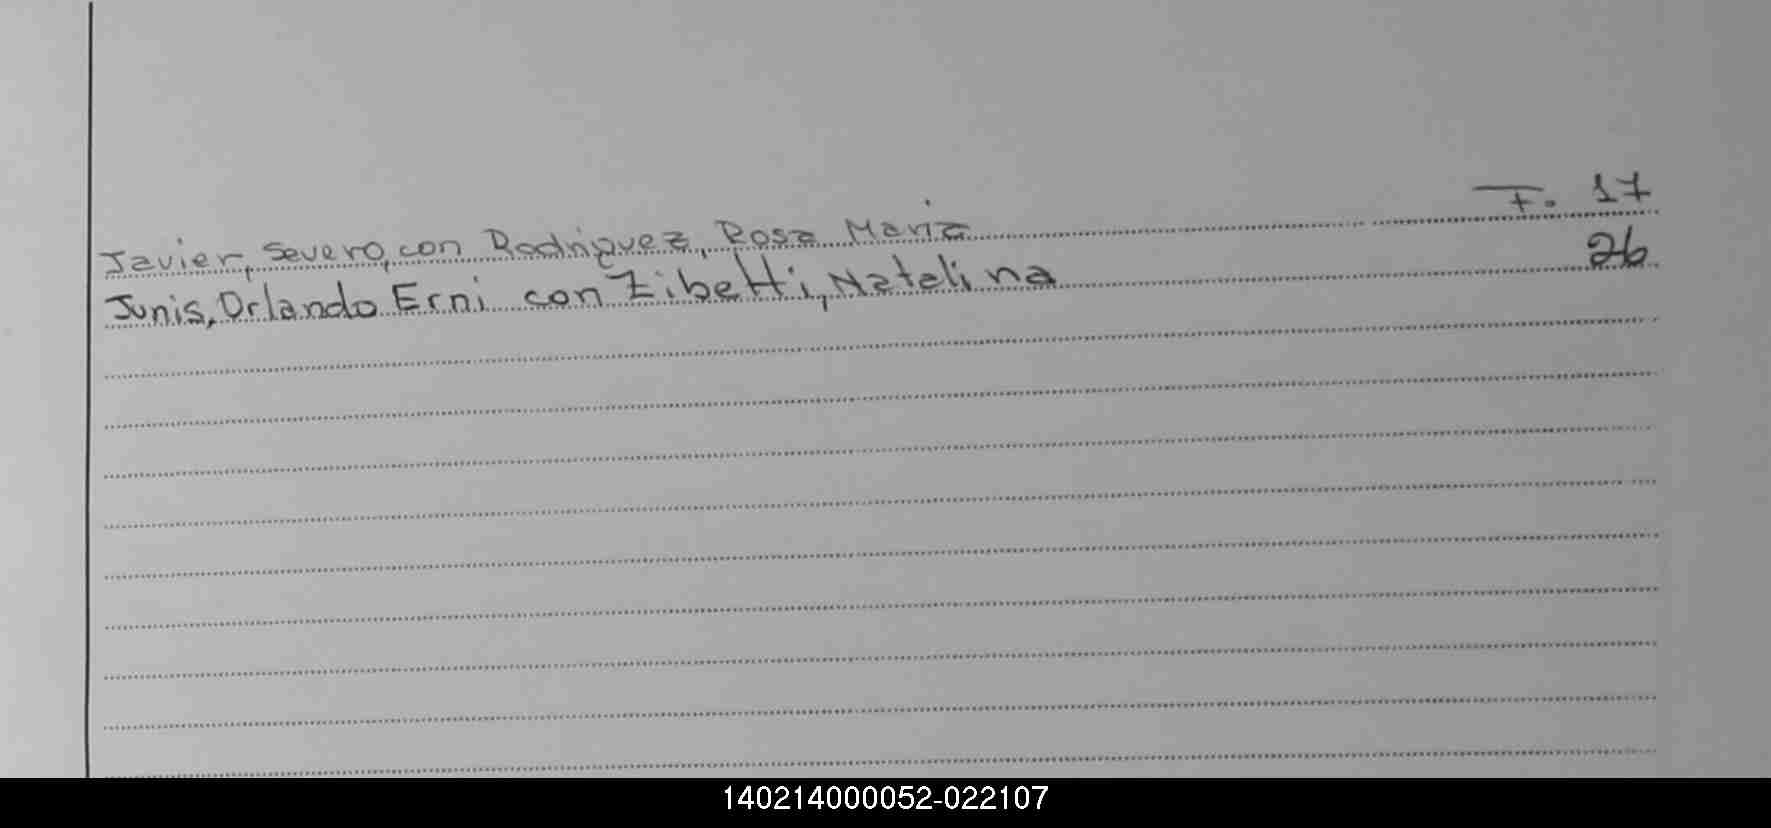 Javier, Severo, con Rodriguez, Rosa Maria F. 17
Junis, Orlando Erni con Zibetti, Natalina 26
140214000052-022107